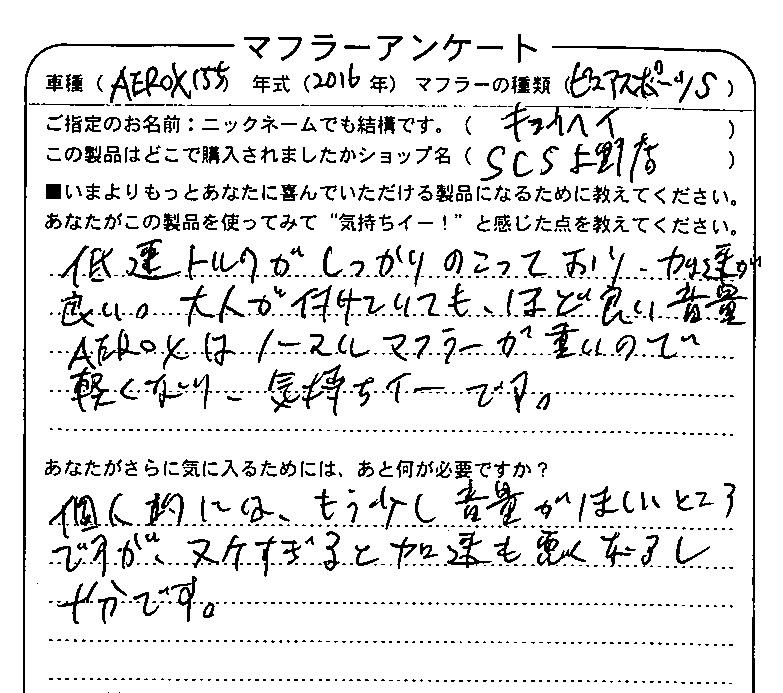 マフラーアンケート
車種（AEROX155）年式（2016年）マフラーの種類（ピュアスポーツS）
ご指定のお名前：ニックネームでも結構です。（キョウヘイ）
この製品はどこで購入されましたかショップ名（SCS上野店）
■いまよりもっとあなたに喜んでいただける製品になるために教えてください。
あなたがこの製品を使ってみて“気持ちイー！”と感じた点を教えてください。
低速トルクがしっかりのこっており、加速が
良い。大人が付けていても、ほど良い音量
AEROXはノーマルマフラーが重いので
軽くなり、気持ちイーです。
あなたがさらに気に入るためには、あと何が必要ですか？
個人的には、もう少し音量がほしいところ
ですが、ヌケすぎると加速も悪くなるし
十分です。